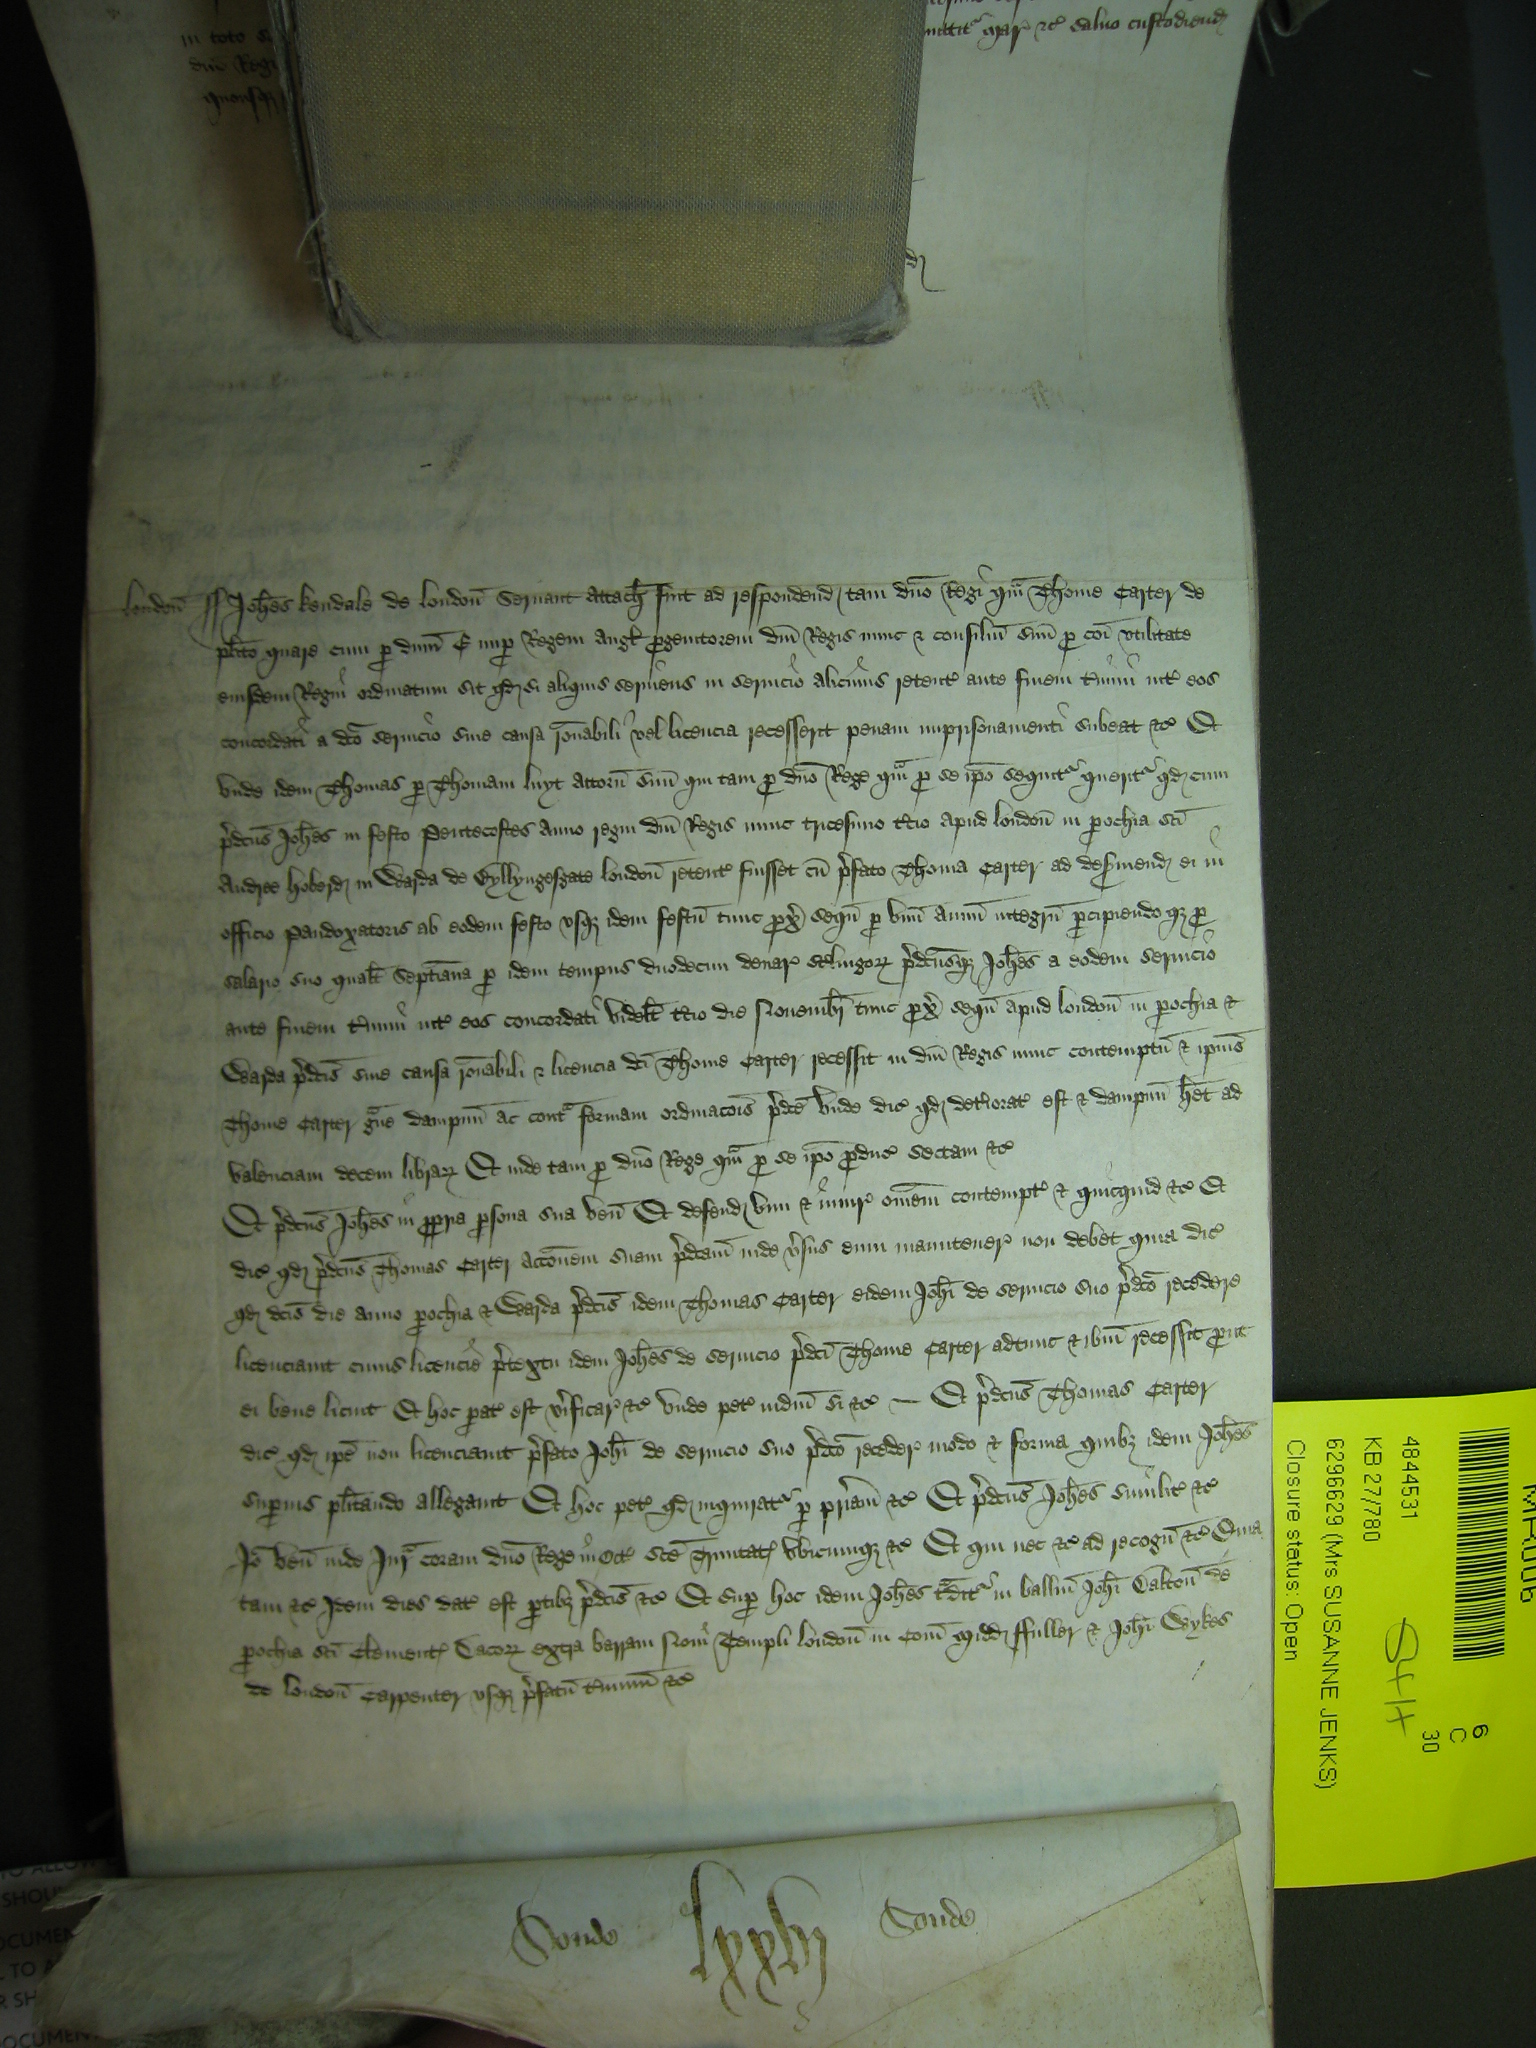 in toto
dni Regis
quousq
mittit Mar &c salvo custodiend
london ss Johes Kendale de london servant attach fuit ad respondend tam dno Regi qm Thome Carter de
plito quare cum p dnm E nup Regem Angl pgenitorem dni Regis nunc & consiliu suu p coi utilitate
eiusdem Regni ordinatum sit qd si aliquis serviens in servicio alicuius retent ante finem tmini int eos
concordati a dco servicio sine causa ronabili vel licencia recesserit penam imprisonamenti subeat &c Et
unde idem Thomas p Thomam luyt attorn suu qui tam p dno Rege qm p se ipo sequit querit qd cum
pdcus Johes in festo Pentecostes anno regni dni Regis nunc tricesimo tcio apud london in pochia sci
Andree hoberd in Warda de Byllyngesgate london retent fuisset cu pfato Thoma Carter ad deserviend ei in
officio Pandoxatoris ab eodem festo usq idem festu tunc px sequ p unu annu integru pcipiendo q p
salario suo qualt septiana p idem tempus duodecim denar stlingor pdcusq Johes a eodem servicio
ante finem tmini int eos concordati videlt tcio die Novembr tunc px sequ apud london in pochia &
Warda pdcis sine causa ronabili & licencia dci Thome Carter recessit in dni Regis nunc contemptu & ipius
Thome Carter gve dampnu ac contr formam ordinacois pdce unde dic qd detiorat est & dampnu het ad
valenciam decem librar Et inde tam p dno Rege qm p se ipo pduc sectam &c
Et pdcus Johes in ppria psona sua ven Et defend vim & iniur omem contempt & quicquid &c Et
dic qd pdcus Thomas Carter accoem suam pdcam inde vsus eum manutener non debet quia dic
qd dcis die anno pochia & Warda pdcis idem Thomas Carter eidem Johi de servicio suo pdco recedere
licenciavit cuius licencie ptextu idem Johes de servicio pdci Thome Carter adtunc & ibm recessit prout
ei bene licuit Et hoc pat est vificar &c unde pet iudm si &c — Et pdcus Thomas Carter
dic qd ipe non licenciavit pfato Johi de servicio suo pdco receder modo & forma quibz idem Johes
superius plitando allegavit Et hoc pet qd inquirat p priam &c Et pdcus Johes similit &c
Io ven inde Jur coram dno Rege in Oct sce Trinitat ubicumq &c Et qui nec &c ad recogn &c Quia
tam &c Idem dies dat est ptibz pdcis &c Et sup hoc idem Johes tdit in balliu Johi Oakton de
pochia sci Clement Dacor extra barram Novi Templi london in Com Midd ffuller & Johi Wykes
de london Carpenter usq pfatu tminu &c
Sonde lxxvj Sonde
MR006
4844531
KB 27/780
6296629 (Mrs SUSANNE JENKS)
Closure status: Open
6
C
30